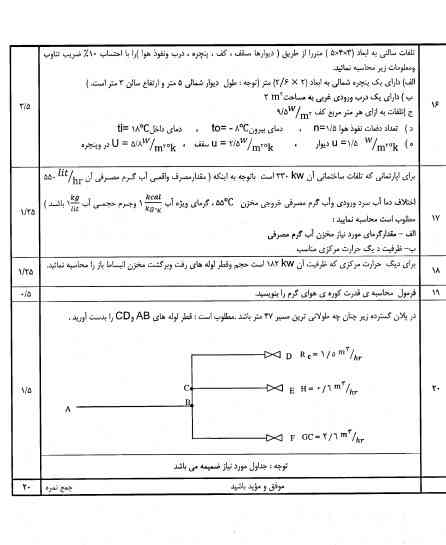 تلفات سالنی به ابعاد (۳×۴×۵) متررا از طریق ( دیوارها سقف ، کف ، پنجره ، درب ونفوذ هوا )را با احتساب ۱۰٪ ضریب تناوب
ومعلومات زیر محاسبه نمائید.
الف) دارای یک پنجره شمالی به ابعاد (۲ × ۲/۶) متر (توجه : طول دیوار شمالی ۵ متر و ارتفاع سالن ۳ متر است. )
ب ) دارای یک درب ورودی غربی به مساحت ۲ m²
ج )تلفات به ازای هر متر مربع کف ۹/۵ W/m²
د ) تعداد دفعات نفوذ هوا n=۱/۵ ، دمای بیرون to= -۸°C ، دمای داخل ti= ۱۸°C
ه ) u =۱/۵ W/m²°k دیوار ، u = ۲/۵ W/m²°k سقف ، U = ۵/۸ W/m²°k در وپنجره
۱۶
۳/۵
برای اپارتمانی که تلفات ساختمانی آن ۳۳۰ kw است باتوجه به اینکه ( مقدارمصرف واقعی آب گرم مصرفی آن ۵۵۰ lit/hr
اختلاف دما آب سرد ورودی وآب گرم مصرفی خروجی مخزن ۵۵°C ، گرمای ویژه آب ۱ kcal/KG.°K وجرم حجمی آب ۱ kg/lit باشد )
مطلوب است محاسبه نمایید :
الف – مقدارگرمای مورد نیاز مخزن آب گرم مصرفی
ب- ظرفیت د یگ حرارت مرکزی مناسب
۱۷
۱/۲۵
برای دیگ حرارت مرکزی که ظرفیت آن ۱۸۲ kw است حجم وقطر لوله های رفت وبرگشت مخزن انبساط باز را محاسبه نمائید.
۱۸
۱/۲۵
فرمول محاسبه ی قدرت کوره ی هوای گرم را بنویسید.
۱۹
۰/۵
در پلان گسترده زیر چنان چه طولانی ترین مسیر ۴۷ متر باشد .مطلوب است : قطر لوله های AB وCD را بدست آورید .
D R c = ۱/۵ m³/hr
C
E H = ۰/۶ m³/hr
B
A
F GC = ۲/۶ m³/hr
۲۰
۱/۵
توجه : جداول مورد نیاز ضمیمه می باشد
موفق و مؤید باشید
جمع نمره
۲۰